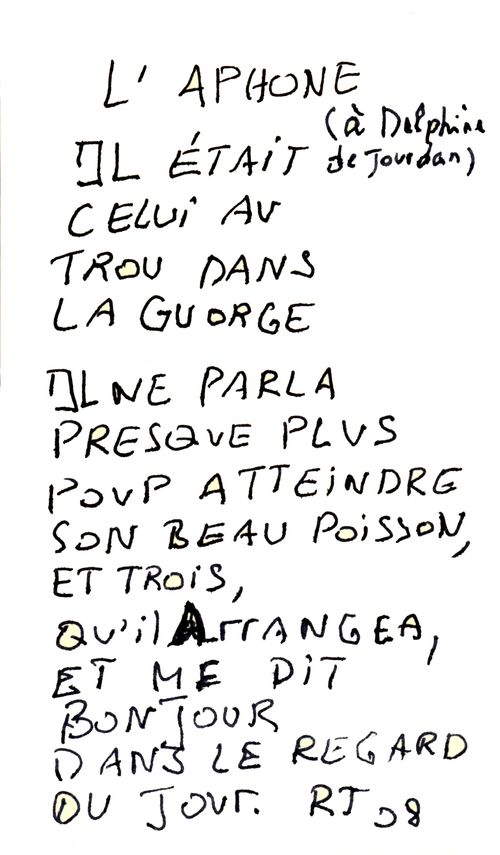 L' APHONE
(à Delphine
de Jourdan)
IL ÉTAIT
CELUI AU
TROU DANS
LA GUORGE
IL NE PARLA
PRESQUE PLUS
POUP ATTEINDRE
SON BEAU POISSON,
ET TROIS,
QU'il ArrANGEA,
ET ME DIT
BONJOUR
DANS LE REGARD
DU JOUr. RJ 08